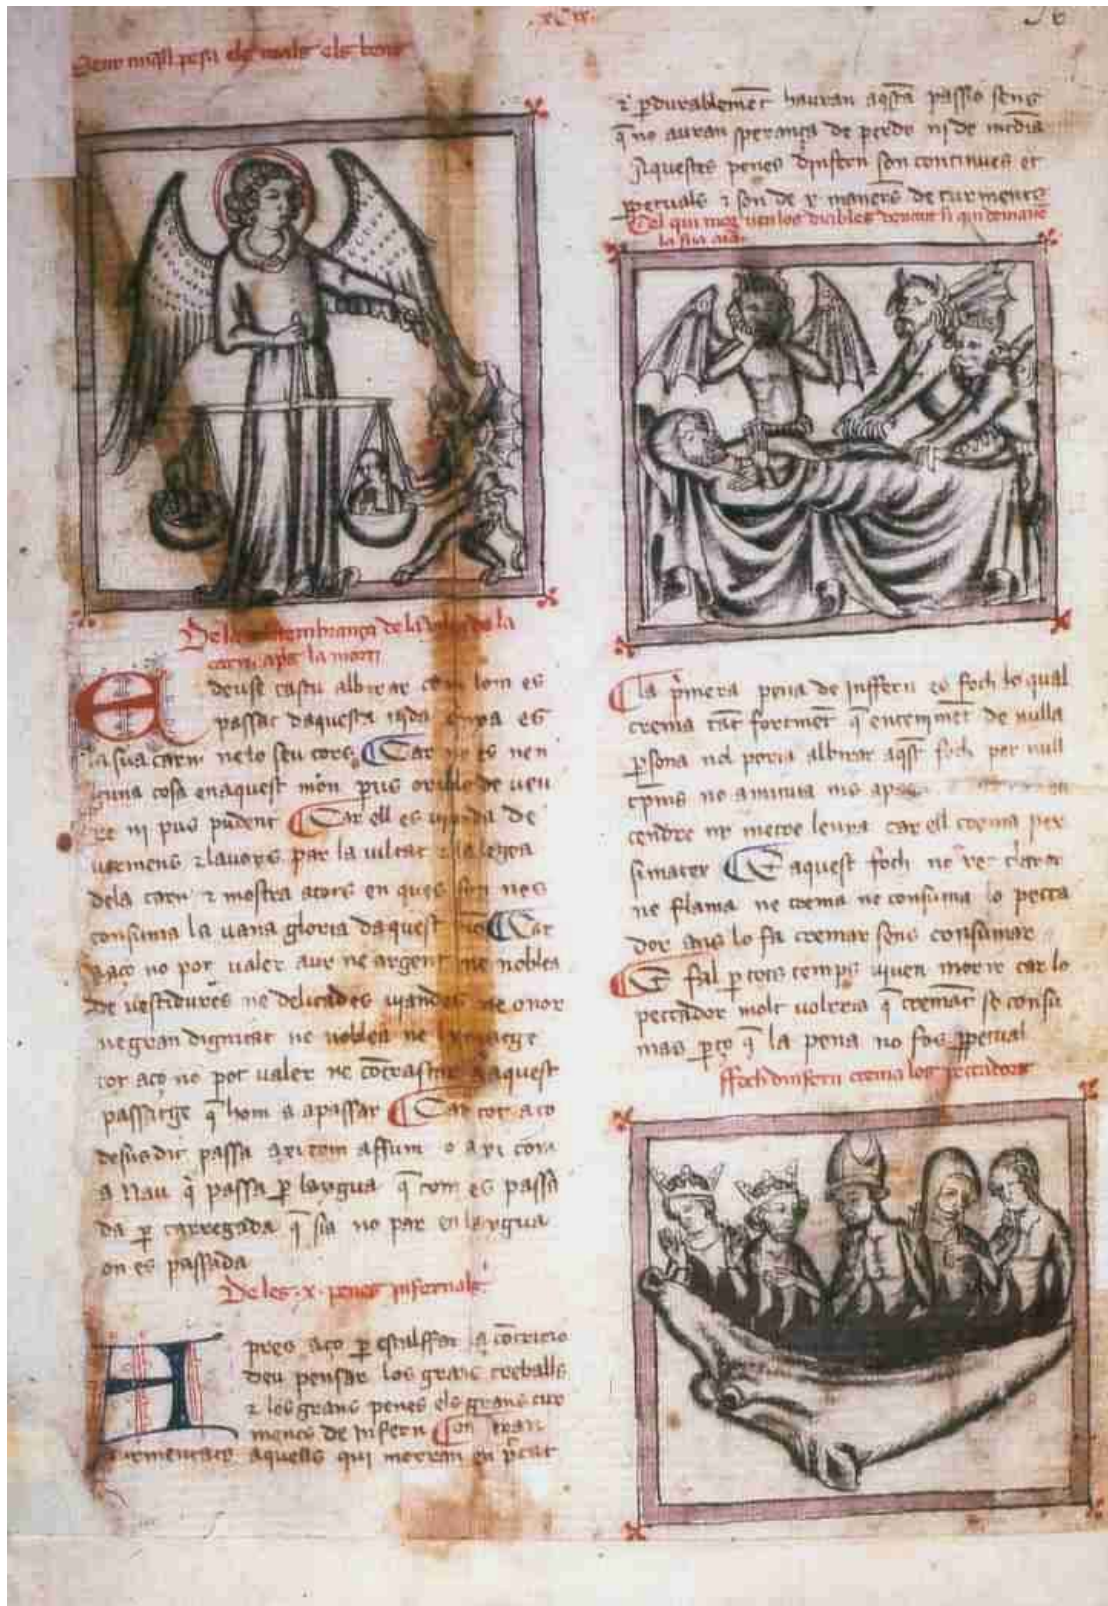 .xCix.
Senr miql pesa els mals els bens
De la membrança de la de la
carn aps la mort
E deuse castu albirar com lom es
passat daquesta uida enpa es
la sua carn ne lo seu cors Car no es nen
guna cosa enaquest mon pus orible de veu
re ni pus pudent Car ell es vianda de
uermens z lauors par la viltat z la legea
dela carn z mostra acors en ques son nes
consuma la uana gloria daquest Car
aço no pot valer aur ne argent ne noblea
de vestidures ne delicades viandes ne onor
ne gran dignitat ne noblea ne
tot aço no pot valer ne cōtrastar aaquest
passatge q hom a apassar Car tot aço
desus dit passa axi com affum o axi com
a Nau q passa p laygua q com es passa
da p carregada q sia no par en laygua
on es passada
De les .x. penes infernals
A pres aço p esculffar a cōtricio
deu pensar los grans treballs
z les grans penes els grans tur
ments de infern Con seran
turmentats aquells qui morran en pcat
z pdurablemēt hauran aqsta passio sens
q no auran sperança de perdo ni de
Aquestes penes dinfern son continues et
ppetuals z son de x maners de turments
Cel qui mor veu los diables deuant si qui demane
la sua aīa
La pmera pena de inffern es foch lo qual
crema tāt fortmēt q entenimēt de nulla
psona nol poria albirar aqst foch per null
tpms no aminua
cendre ny metre lenya car ell crema per
simateix E aquest foch no claror
ne flama ne crema ne consuma lo pecca
dor ans lo fa cremar sens consumar
E fal p tots temps viuen morir car lo
peccador molt volria q cremāt se consu
mas pço q la pena no fos ppetual
Foch dinfern crema los peccadors